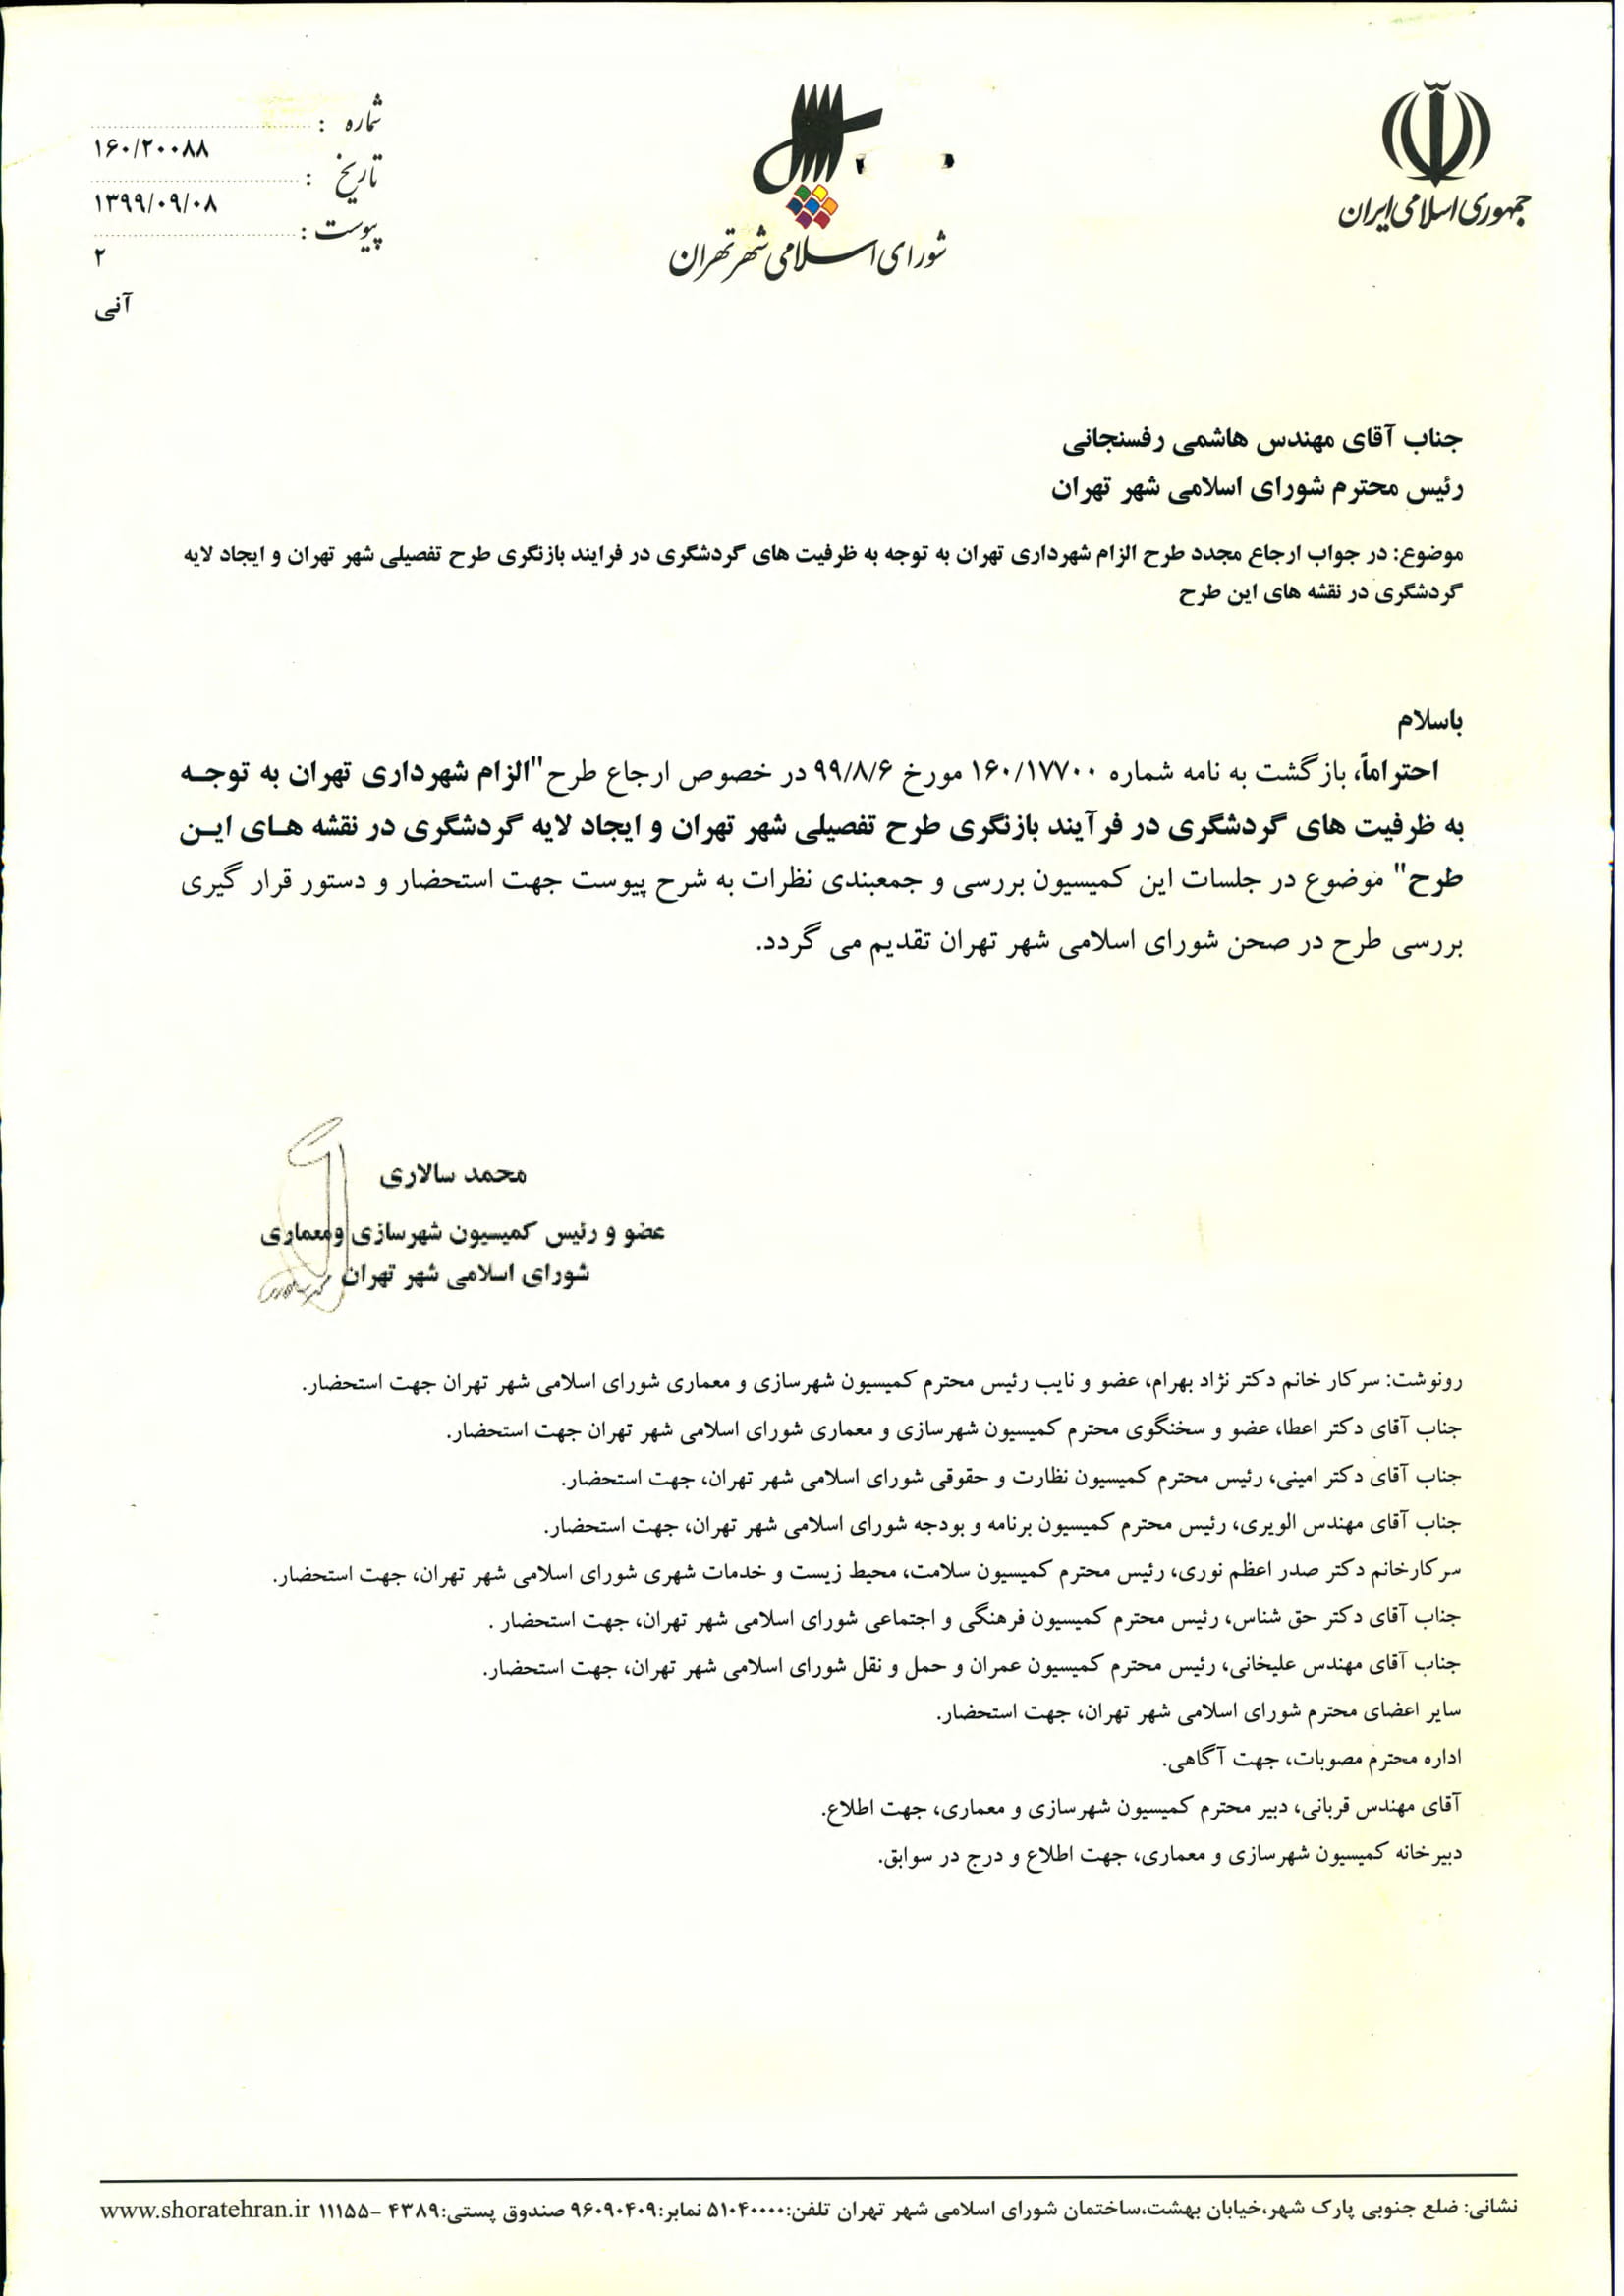 جمهوری اسلامی ایران
شورای اسلامی شهر تهران
شماره :
۱۶۰/۲۰۰۸۸
تاریخ :
۱۳۹۹/۰۹/۰۸
پیوست :
۲
آنی
جناب آقای مهندس هاشمی رفسنجانی
رئیس محترم شورای اسلامی شهر تهران
موضوع: در جواب ارجاع مجدد طرح الزام شهرداری تهران به توجه به ظرفیت های گردشگری در فرایند بازنگری طرح تفصیلی شهر تهران و ایجاد لایه
گردشگری در نقشه های این طرح
باسلام
احتراماً، بازگشت به نامه شماره ۱۶۰/۱۷۷۰۰ مورخ ۹۹/۸/۶ در خصوص ارجاع طرح"الزام شهرداری تهران به توجـه
به ظرفیت های گردشگری در فرآیند بازنگری طرح تفصیلی شهر تهران و ایجاد لایه گردشگری در نقشه هـای ایـن
طرح" موضوع در جلسات این کمیسیون بررسی و جمعبندی نظرات به شرح پیوست جهت استحضار و دستور قرار گیری
بررسی طرح در صحن شورای اسلامی شهر تهران تقدیم می گردد.
محمد سالاری
عضو و رئیس کمیسیون شهرسازی ومعماری
شورای اسلامی شهر تهران
رونوشت: سرکار خانم دکتر نژاد بهرام، عضو و نایب رئیس محترم کمیسیون شهرسازی و معماری شورای اسلامی شهر تهران جهت استحضار.
جناب آقای دکتر اعطا، عضو و سخنگوی محترم کمیسیون شهرسازی و معماری شورای اسلامی شهر تهران جهت استحضار.
جناب آقای دکتر امینی، رئیس محترم کمیسیون نظارت و حقوقی شورای اسلامی شهر تهران، جهت استحضار.
جناب آقای مهندس الویری، رئیس محترم کمیسیون برنامه و بودجه شورای اسلامی شهر تهران، جهت استحضار.
سرکارخانم دکتر صدر اعظم نوری، رئیس محترم کمیسیون سلامت، محیط زیست و خدمات شهری شورای اسلامی شهر تهران، جهت استحضار.
جناب آقای دکتر حق شناس، رئیس محترم کمیسیون فرهنگی و اجتماعی شورای اسلامی شهر تهران، جهت استحضار .
جناب آقای مهندس علیخانی، رئیس محترم کمیسیون عمران و حمل و نقل شورای اسلامی شهر تهران، جهت استحضار.
سایر اعضای محترم شورای اسلامی شهر تهران، جهت استحضار.
اداره محترم مصوبات، جهت آگاهی.
آقای مهندس قربانی، دبیر محترم کمیسیون شهرسازی و معماری، جهت اطلاع.
دبیرخانه کمیسیون شهرسازی و معماری، جهت اطلاع و درج در سوابق.
نشانی: ضلع جنوبی پارک شهر،خیابان بهشت،ساختمان شورای اسلامی شهر تهران تلفن:۵۱۰۴۰۰۰۰ نمابر:۹۶۰۹۰۴۰۹ صندوق پستی:۴۳۸۹ -۱۱۱۵۵ www.shoratehran.ir